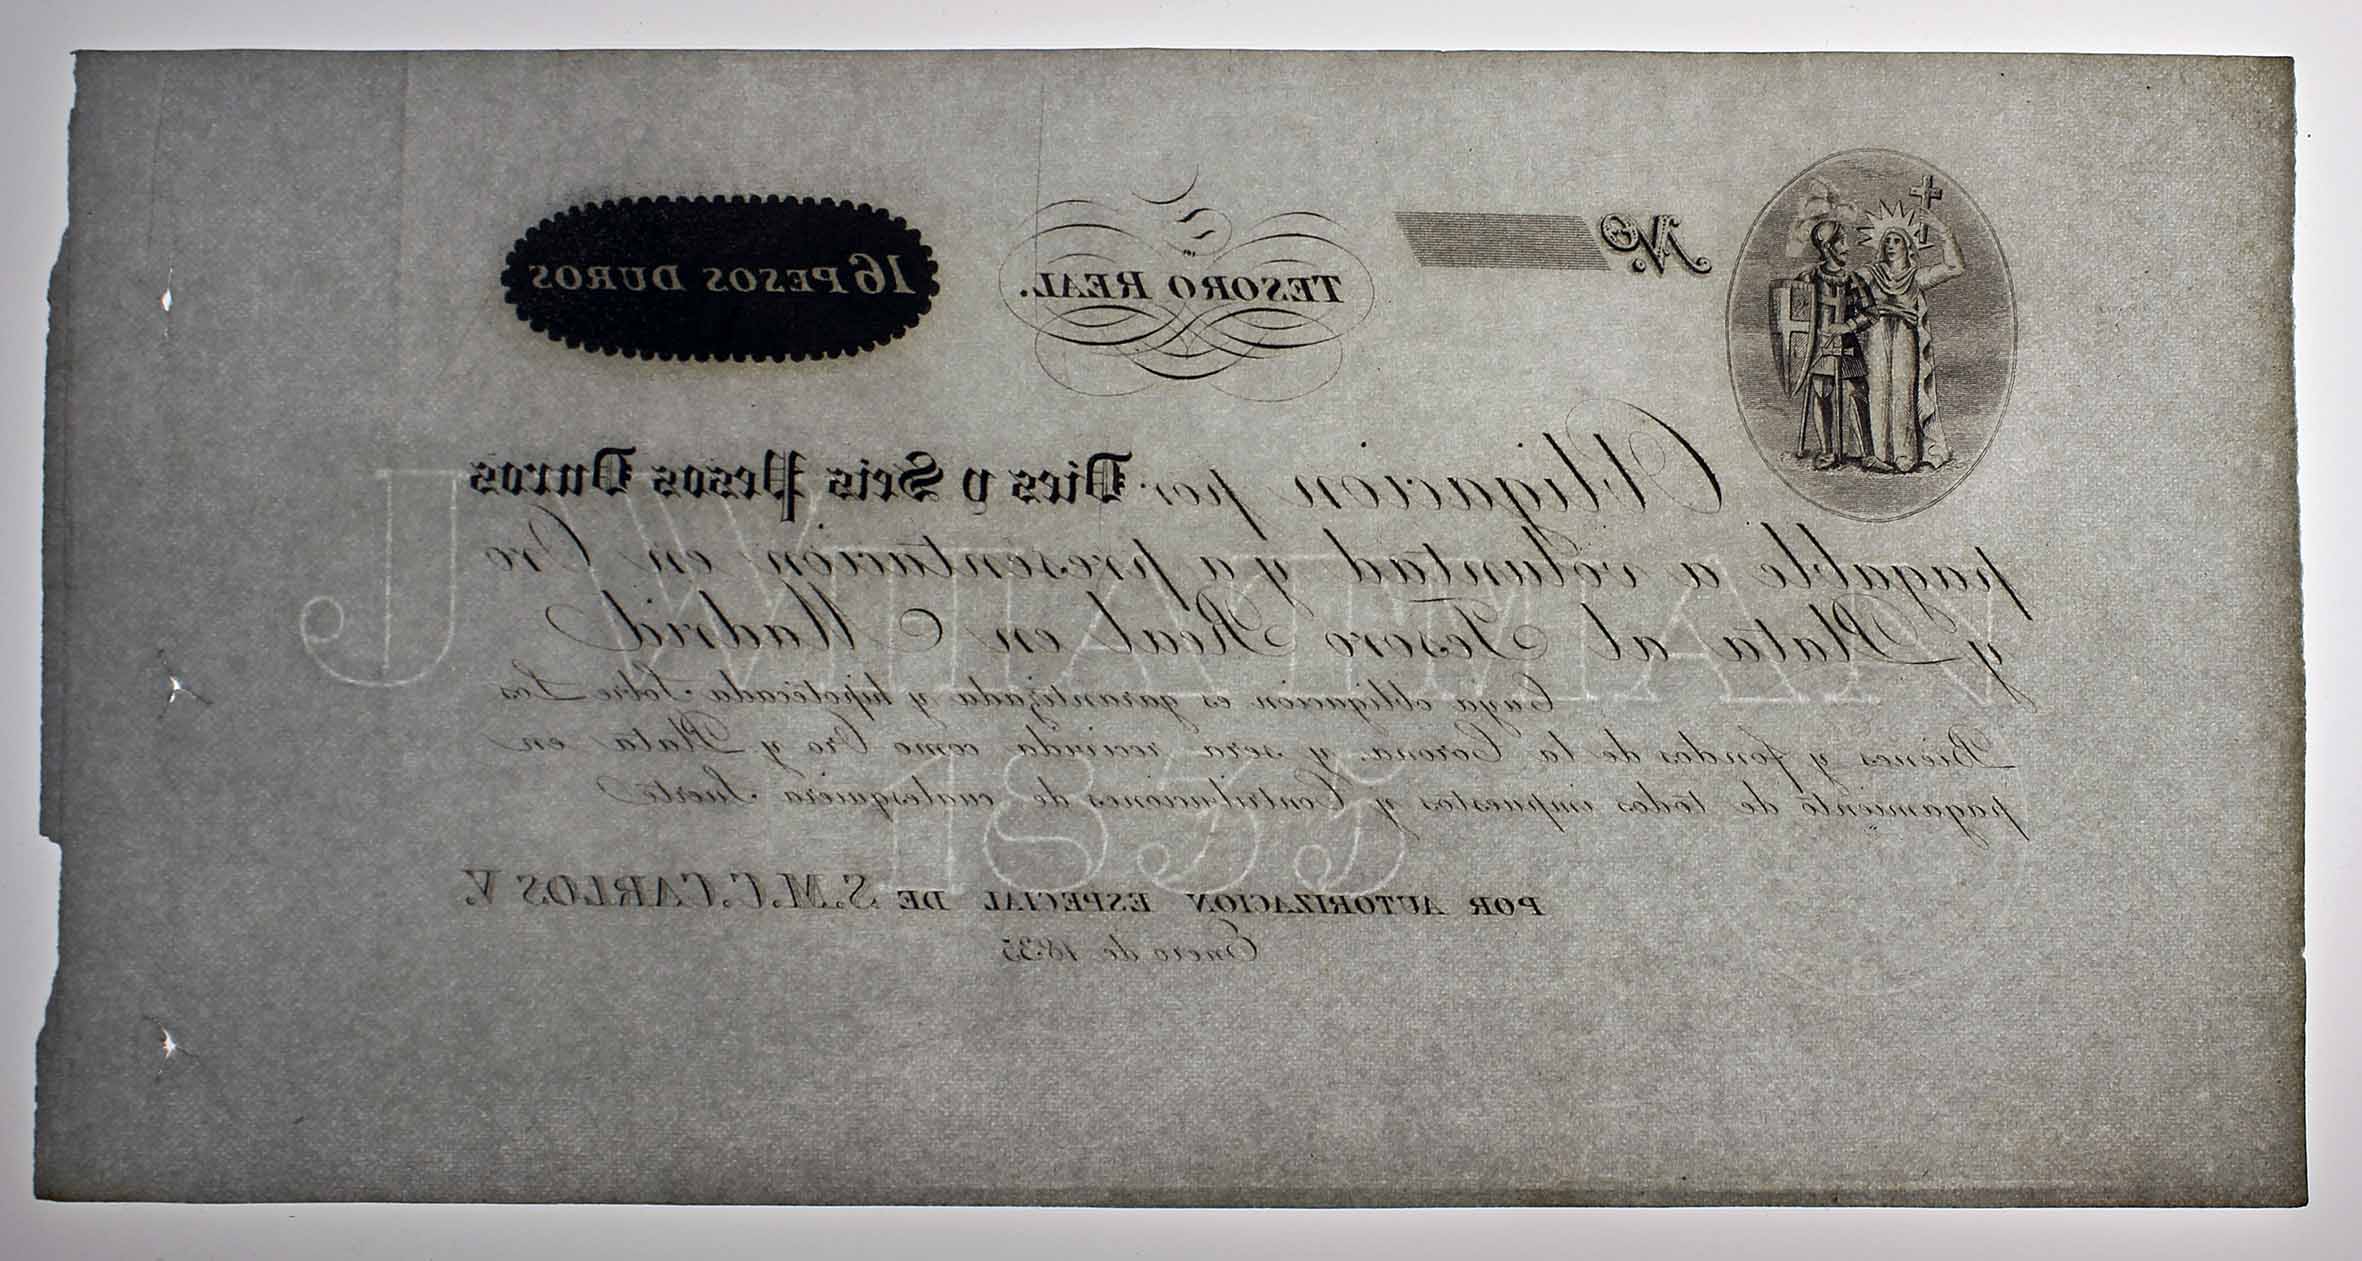 Nº
TESORO REAL.
16 PESOS DUROS
Obligacion por Dies y Seis Pesos Duros
pagable a voluntad y a presentacion en Oro
y Plata al Tesoro Real en Madrid
Cuya obligacion es garantizada y hipotecada Sobre Los
Bienes y fondos de la Corona. y sera recivida como Oro y Plata en
pagamiento de todos impuestos y Contribuciones de cualesquiera Suerte
POR AUTORIZACION ESPECIAL DE S.M.C. CARLOS V.
Enero de 1835
J WHATMAN